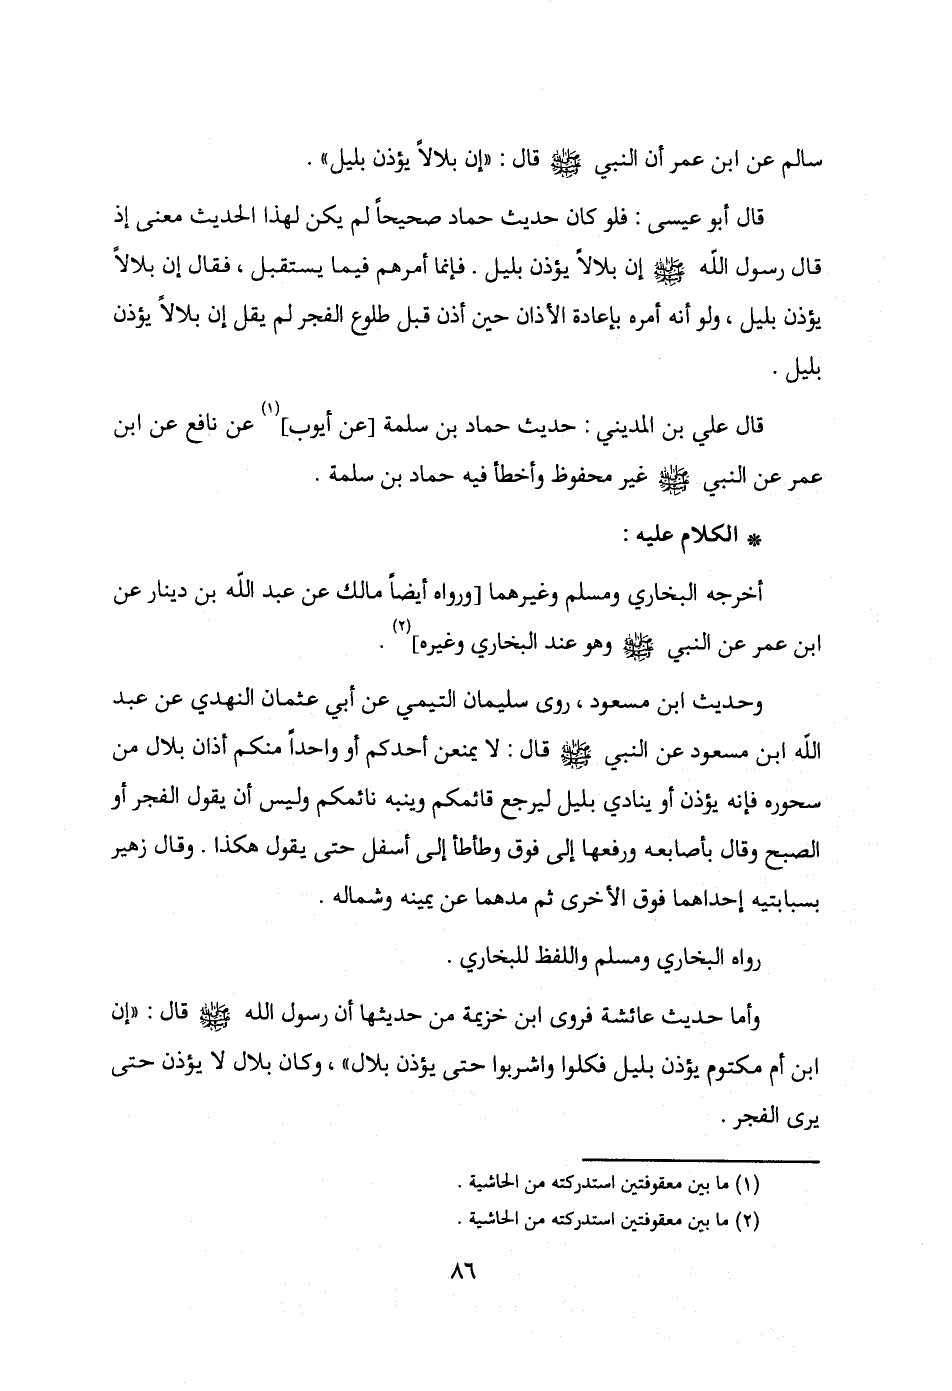 سالم عن ابن عمر أن النبي ﷺ قال : «إن بلالاً يؤذن بليل» .
قال أبو عيسى : فلو كان حديث حماد صحيحاً لم يكن لهذا الحديث معنى إذ
قال رسول اللّه ﷺ إن بلالاً يؤذن بليل . فإنما أمرهم فيما يستقبل ، فقال إن بلالاً
يؤذن بليل ، ولو أنه أمره بإعادة الأذان حين أذن قبل طلوع الفجر لم يقل إن بلالاً يؤذن
بليل .
قال علي بن المديني : حديث حماد بن سلمة [عن أيوب](١) عن نافع عن ابن
عمر عن النبي ﷺ غير محفوظ وأخطأ فيه حماد بن سلمة .
* الكلام عليه :
أخرجه البخاري ومسلم وغيرهما [ورواه أيضاً مالك عن عبد اللّه بن دينار عن
ابن عمر عن النبي ﷺ وهو عند البخاري وغيره](٢) .
وحديث ابن مسعود ، روى سليمان التيمي عن أبي عثمان النهدي عن عبد
اللّه ابن مسعود عن النبي ﷺ قال : لا يمنعن أحدكم أو واحداً منكم أذان بلال من
سحوره فإنه يؤذن أو ينادي بليل ليرجع قائمكم وينبه نائمكم وليس أن يقول الفجر أو
الصبح وقال بأصابعه ورفعها إلى فوق وطأطأ إلى أسفل حتى يقول هكذا . وقال زهير
بسبابتيه إحداهما فوق الأخرى ثم مدهما عن يمينه وشماله .
رواه البخاري ومسلم واللفظ للبخاري .
وأما حديث عائشة فروى ابن خزيمة من حديثها أن رسول الله ﷺ قال : «إن
ابن أم مكتوم يؤذن بليل فكلوا واشربوا حتى يؤذن بلال» ، وكان بلال لا يؤذن حتى
يرى الفجر .
(١) ما بين معقوفتين استدركته من الحاشية .
(٢) ما بين معقوفتين استدركته من الحاشية .
٨٦